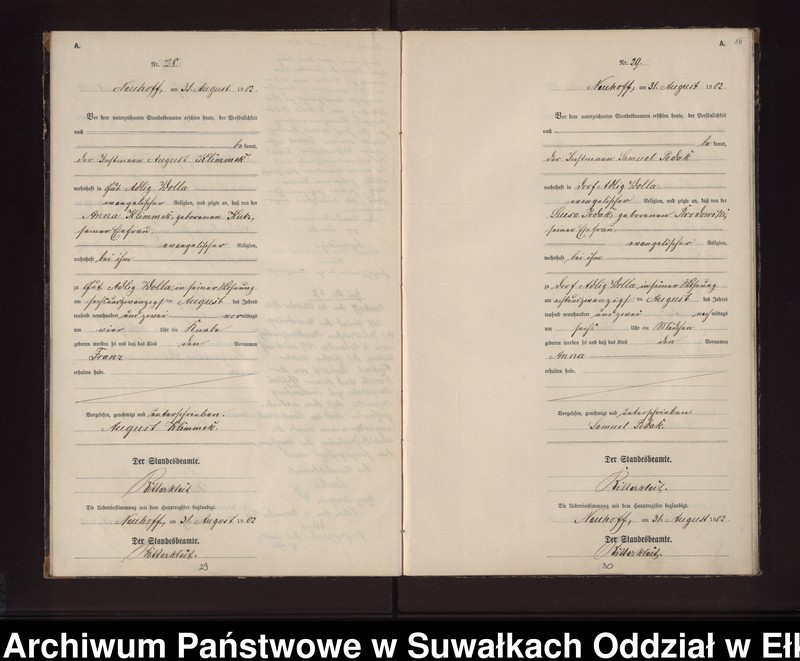 A.
Nr. 28.
Neuhoff, am 31. August 1902.
Vor dem unterzeichneten Standesbeamten erschien heute, der Persönlichkeit
nach
be kannt,
der Instmann August Klimmek
wohnhaft in Gut Adlig Wolla
evangelischer Religion, und zeigte an, daß von der
Anna Klimmek, geborenen
seiner Ehefrau
evangelischer Religion,
wohnhaft bei ihm
zu Gut Adlig Wolla in seiner Wohnung
am sechsundzwanzigsten August des Jahres
tausend neunhundert und zwei vormittags
um vier Uhr ein Knabe
geboren worden sei und daß das Kind den Vornamen
Franz
erhalten habe.
Vorgelesen, genehmigt und unterschrieben.
August Klimmek.
Der Standesbeamte.
Die Uebereinstimmung mit dem Hauptregister beglaubigt.
Neuhoff, am 31. August 1902
Der Standesbeamte.
29
A.
Nr. 29.
Neuhoff, am 31. August 1902
Vor dem unterzeichneten Standesbeamten erschien heute, der Persönlichkeit
nach
be kannt,
der Instmann Samuel Sedak
wohnhaft in Dorf Adlig Wolla
evangelischer Religion, und zeigte an, daß von der
Luise Sedak, geborenen
seiner Ehefrau
evangelischer Religion,
wohnhaft bei ihm
zu Dorf Adlig Wolla in seiner Wohnung
am achtundzwanzigsten August des Jahres
tausend neunhundert und zwei nachmittags
um sechs Uhr ein Mädchen
geboren worden sei und daß das Kind den Vornamen
Anna
erhalten habe.
Vorgelesen, genehmigt und unterschrieben
Samuel Sedak.
Der Standesbeamte.
Die Uebereinstimmung mit dem Hauptregister beglaubigt.
Neuhoff, am 31. August 1902.
Der Standesbeamte.
30
Archiwum Państwowe w Suwałkach Oddział w Ełk